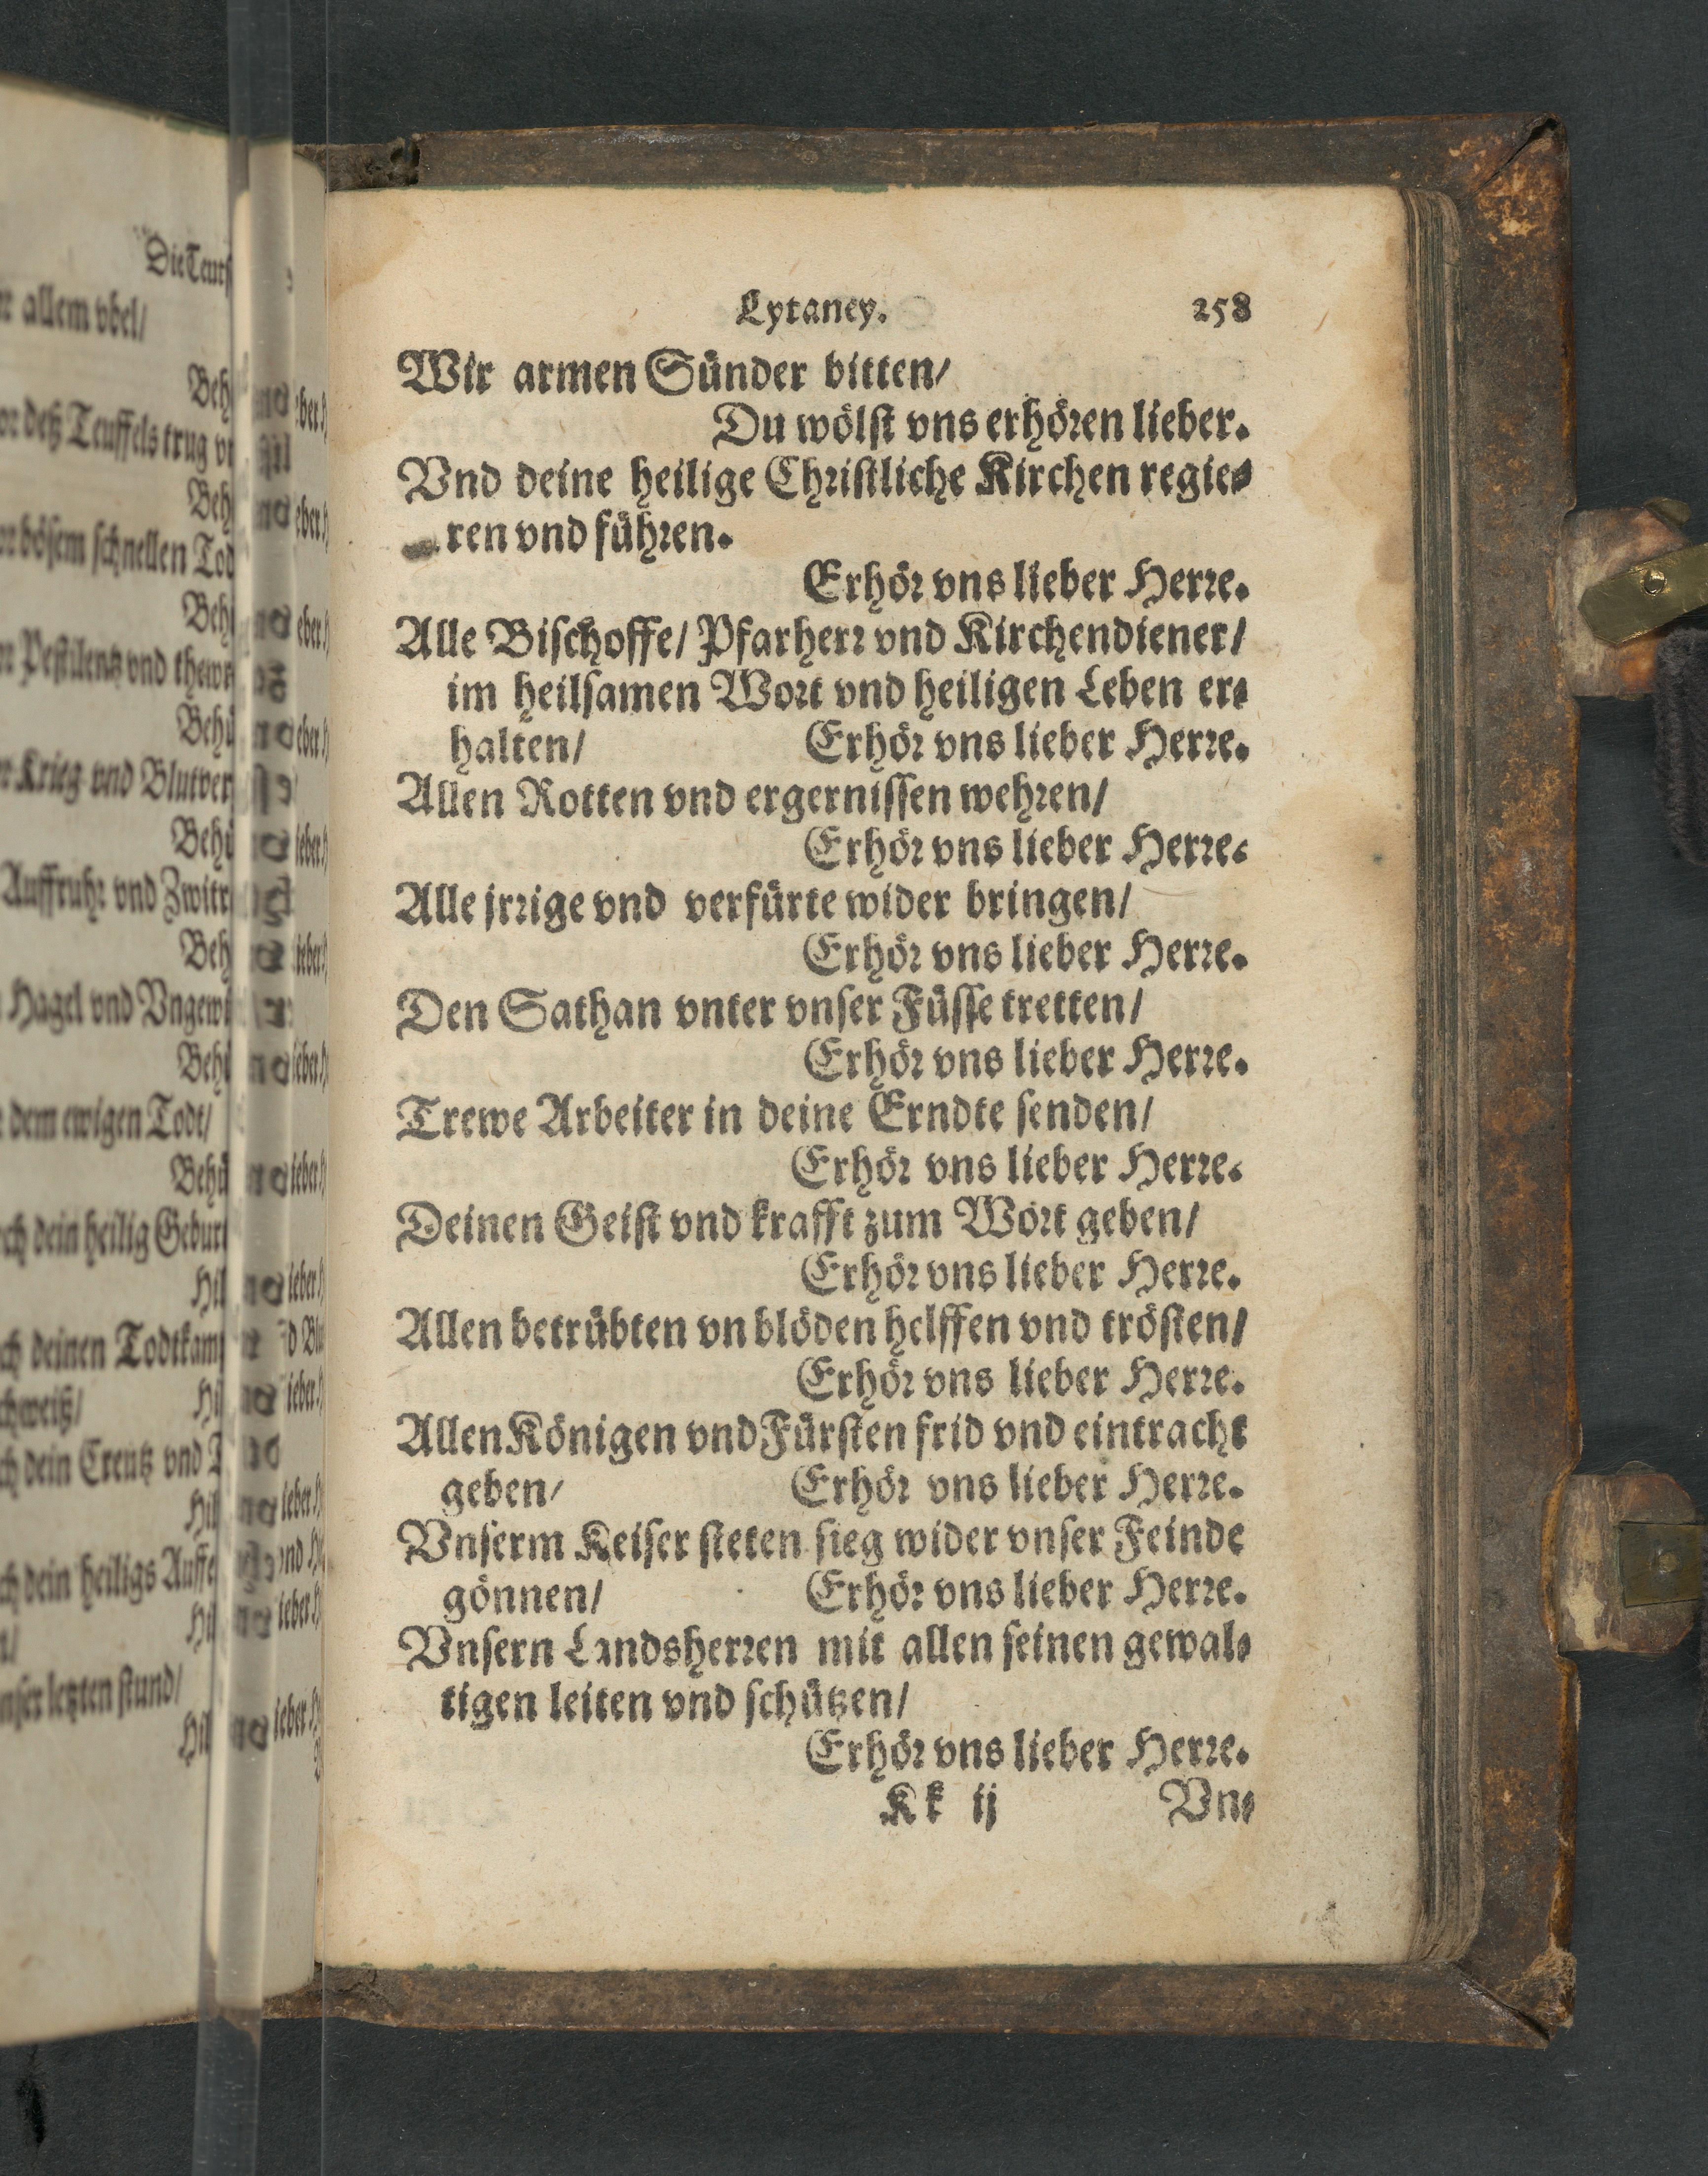 Die Teuts
allem vbel/
Beh
detz Teuffels trug
Beh
bösem schnellen Tod
Beh
Pestilentz vnd thewr
Behü
Krieg vnd Blutver
Behü
Auffruhr vnd Zwitr
Beh
Hagel vnd Vngewi
Behü
dem ewigen Todt/
Behü
dein heilig Geburt
Hil
deinen Todtkamp
Hil
dein Creutz vnd
Hil
dein heiligs Auffe
Hil
letzten stund/
Hil
Lytaney. 258
Wir armen Sünder bitten/
Du wölst vns erhören lieber.
Vnd deine heilige Christliche Kirchen regie⸗
ren vnd führen.
Erhör vns lieber Herre.
Alle Bischoffe/ Pfarherr vnd Kirchendiener/
im heilsamen Wort vnd heiligen Leben er⸗
halten/ Erhör vns lieber Herre.
Allen Rotten vnd ergernissen wehren/
Erhör vns lieber Herre.
Alle jrrige vnd verfürte wider bringen/
Erhör vns lieber Herre.
Den Sathan vnter vnser Füsse tretten/
Erhör vns lieber Herre.
Trewe Arbeiter in deine Erndte senden/
Erhör vns lieber Herre.
Deinen Geist vnd krafft zum Wort geben/
Erhör vns lieber Herre.
Allen betrübten vn blöden helffen vnd trösten/
Erhör vns lieber Herre.
Allen Königen vnd Fürsten frid vnd eintracht
geben/ Erhör vns lieber Herre.
Vnserm Keiser steten sieg wider vnser Feinde
gönnen/ Erhör vns lieber Herre.
Vnsern Landsherren mit allen seinen gewal⸗
tigen leiten vnd schützen/
Erhör vns lieber Herre.
Kk ij Vn⸗